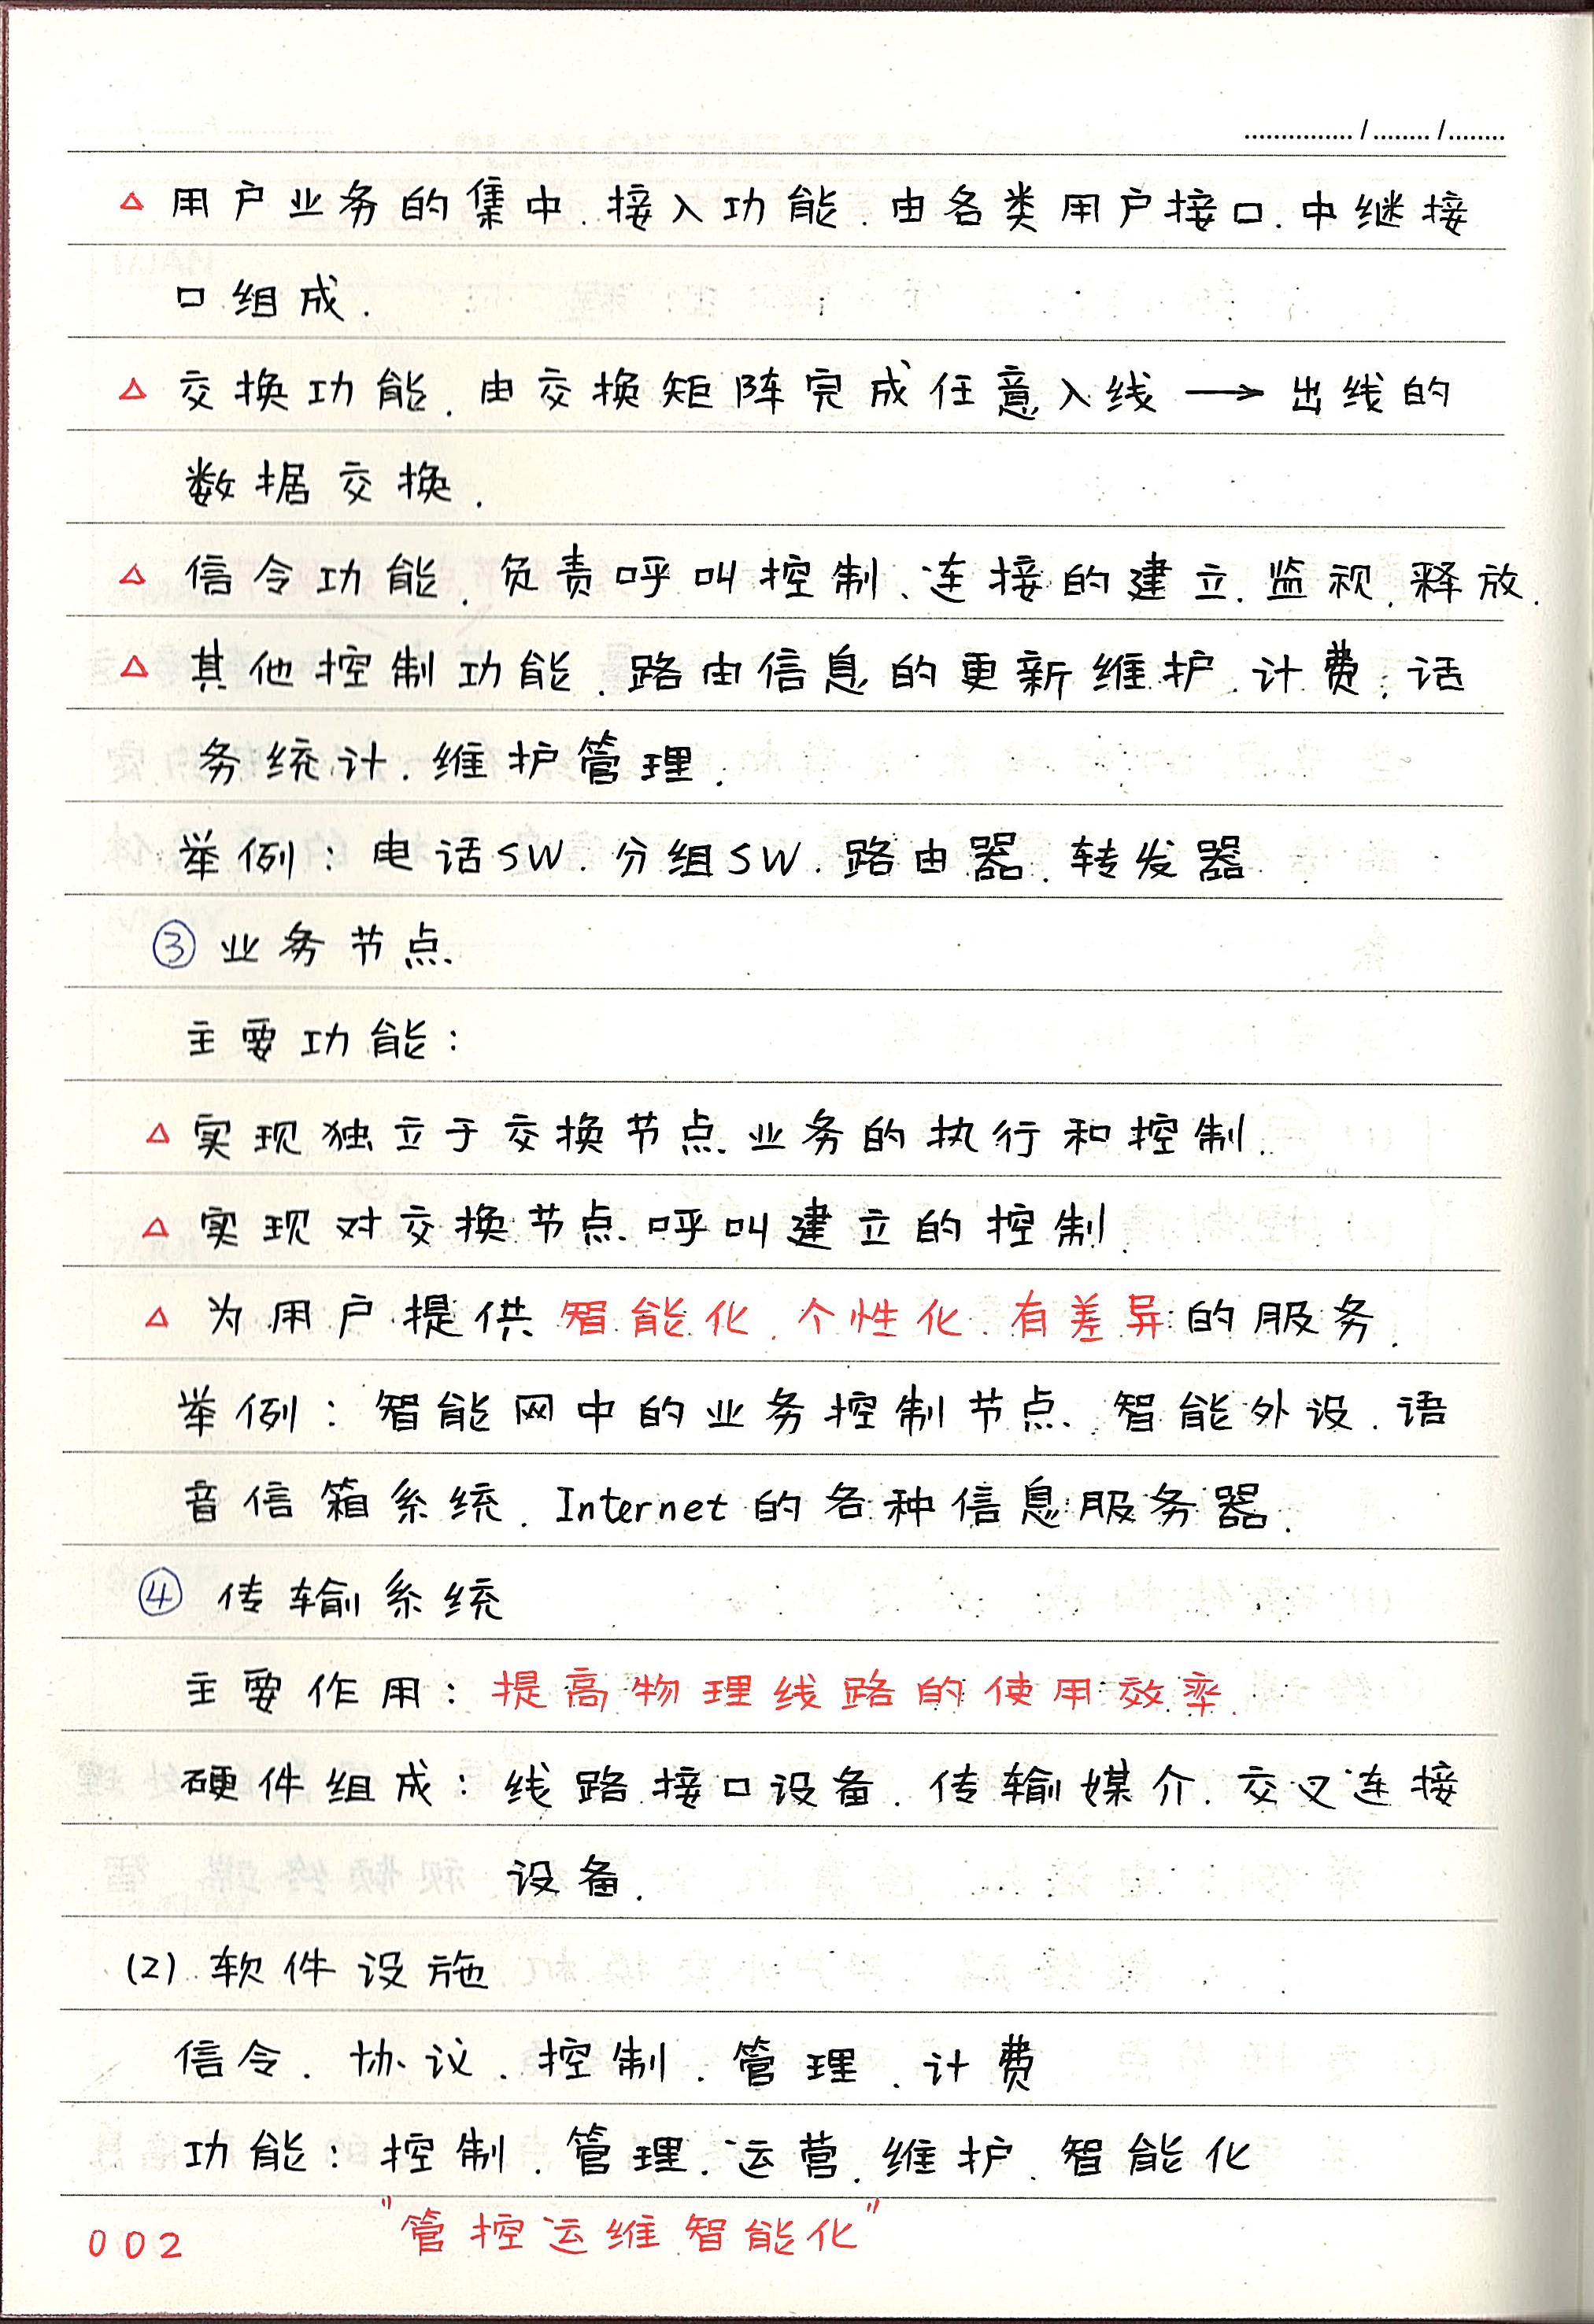 ............... / ........ / ........
△ 用户业务的集中、接入功能、由各类用户接口、中继接
口组成.
△ 交换功能、由交换矩阵完成任意入线 → 出线的
数据交换.
△ 信令功能、负责呼叫控制、连接的建立、监视、释放.
△ 其他控制功能、路由信息的更新维护、计费、话
务统计、维护管理.
举例：电话SW、分组SW、路由器、转发器
③ 业务节点
主要功能：
△ 实现独立于交换节点业务的执行和控制.
△ 实现对交换节点呼叫建立的控制.
△ 为用户提供智能化、个性化、有差异的服务.
举例：智能网中的业务控制节点、智能外设、语
音信箱系统、Internet的各种信息服务器.
④ 传输系统
主要作用：提高物理线路的使用效率.
硬件组成：线路接口设备、传输媒介、交叉连接
设备.
(2) 软件设施
信令、协议、控制、管理、计费
功能：控制、管理、运营、维护、智能化
"管控运维智能化"
002